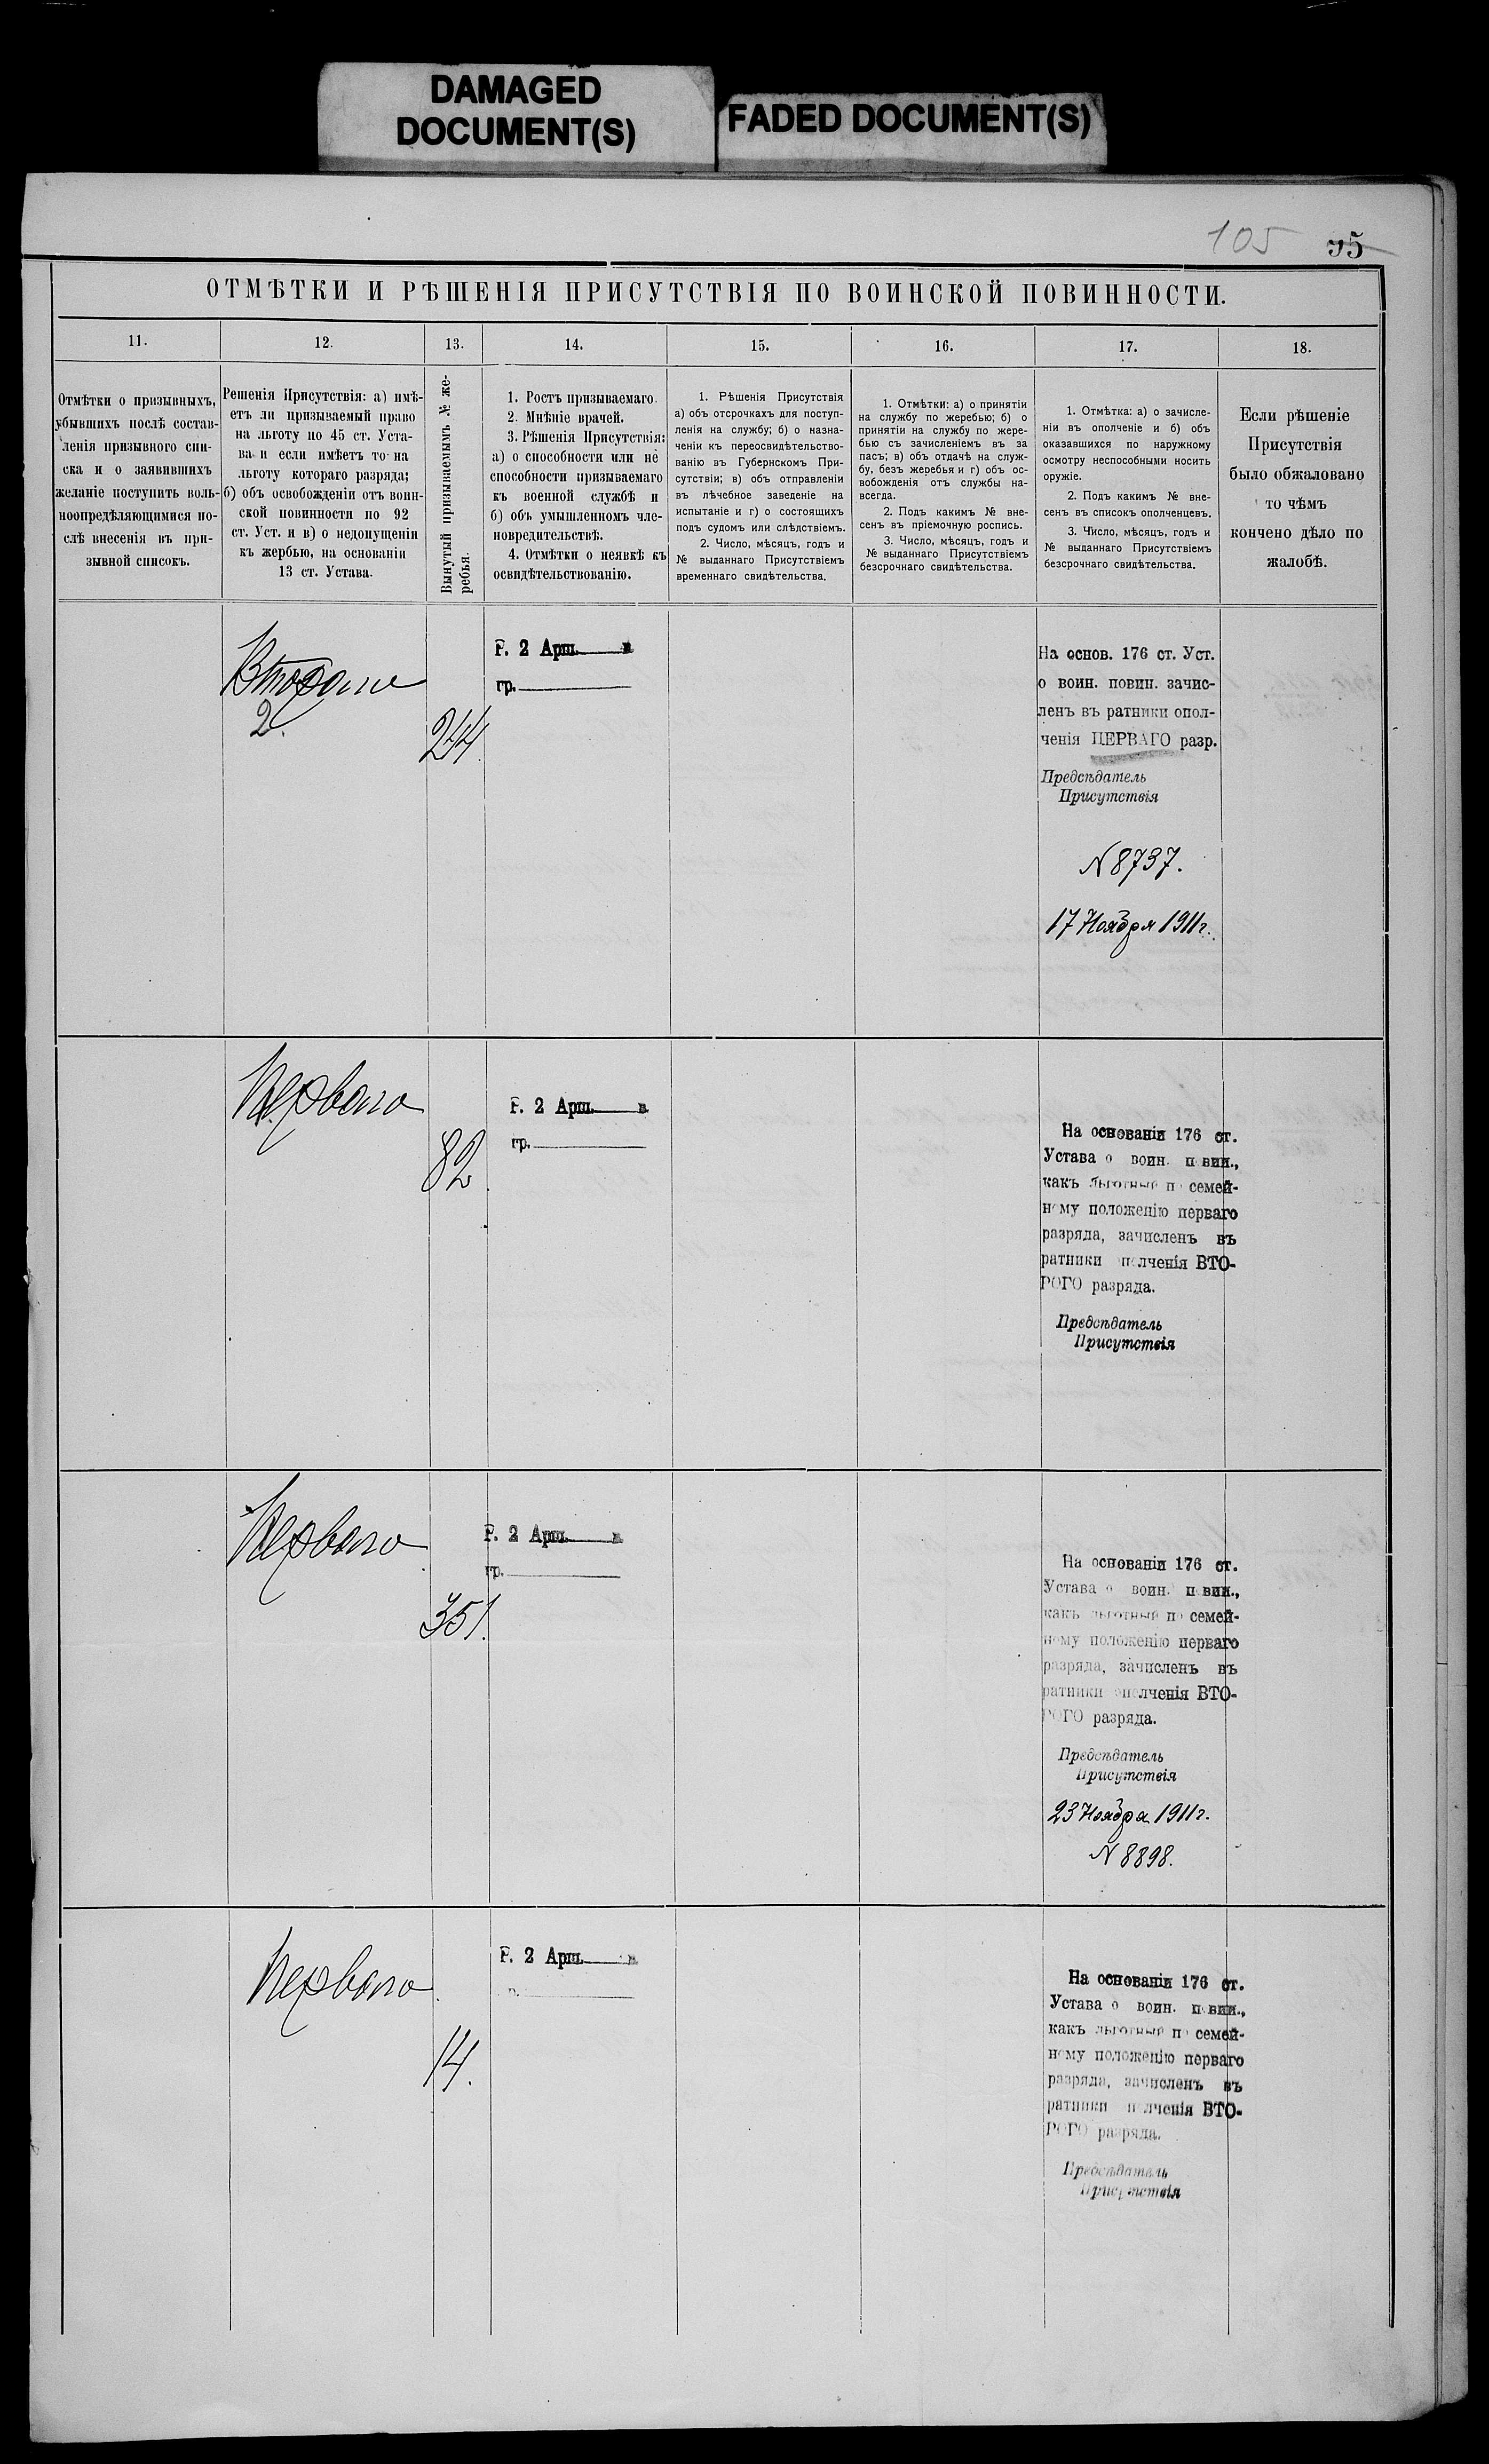 DAMAGED
DOCUMENT(S)
FADED DOCUMENT(S)
105
ОТМѢТКИ И РѢШЕНІЯ ПРИСУТСТВІЯ ПО ВОИНСКОЙ ПОВИННОСТИ.
11.
12.
13.
14.
15.
16.
17.
18.
Отмѣтки о призывныхъ,
убывшихъ послѣ состав-
ленія призывного спи-
ска и о заявившихъ
желаніе поступить воль-
ноопредѣляющимися по-
слѣ внесенія въ при-
зывной списокъ.
Решенія Присутствія: а) имѣ-
етъ ли призываемый право
на льготу по 45 ст. Уста-
ва и если имѣетъ то на
льготу котораго разряда;
б) объ освобожденіи отъ воин-
ской повинности по 92
ст. Уст. и в) о недопущеніи
къ жербью, на основаніи
13 ст. Устава.
Вынутый призываемымъ № же-
ребья.
1. Ростъ призываемаго.
2. Мнѣніе врачей.
3. Рѣшенія Присутствія:
а) о способности или не
способности призываемаго
къ военной службѣ и
б) объ умышленномъ чле-
новредительствѣ.
4. Отмѣтки о неявкѣ къ
освидѣтельствованію.
1. Рѣшенія Присутствія
а) объ отсрочкахъ для поступ-
ленія на службу; б) о назна-
ченіи къ переосвидѣтельство-
ванію въ Губернскомъ При-
сутствіи; в) объ отправленіи
въ лѣчебное заведеніе на
испытаніе и г) о состоящихъ
подъ судомъ или слѣдствіемъ.
2. Число, мѣсяцъ, годъ и
№ выданнаго Присутствіемъ
временнаго свидѣтельства.
1. Отмѣтки: а) о принятіи
на службу по жеребью; б) о
принятіи на службу по жере-
бью съ зачисленіемъ въ за
пасъ; в) объ отдачѣ на служ-
бу, безъ жеребья и г) объ ос-
вобожденія отъ службы на-
всегда.
2. Подъ какимъ № вне-
сенъ въ пріемочную роспись.
3. Число, мѣсяцъ, годъ и
№ выданнаго Присутствіемъ
безсрочнаго свидѣтельства.
1. Отмѣтка: а) о зачисле-
ніи въ ополченіе и б) объ
оказавшихся по наружному
осмотру неспособными носить
оружіе.
2. Подъ какимъ № вне-
сенъ въ списокъ ополченцевъ.
3. Число, мѣсяцъ, годъ и
№ выданнаго Присутствіемъ
безсрочнаго свидѣтельства.
Если рѣшеніе
Присутствія
было обжаловано
то чѣмъ
кончено дѣло по
жалобѣ.
2.
244.
Р. 2 Арш. в
гр.
На основ. 176 ст. Уст.
о воин. повин. зачис-
ленъ въ ратники опол-
ченія ПЕРВАГО разр.
Предсѣдатель
Присутствія
N 8737.
17 Ноября 1911 г.
Перваго
82
Р. 2 Арш. в
гр.
На основаніи 176 ст.
Устава о воин. повин.,
какъ льготный по семей-
ному положенію перваго
разряда, зачисленъ въ
ратники ополченія ВТО-
РОГО разряда.
Предсѣдатель
Присутствія
Перваго
351.
Р. 2 Арш. в
гр.
На основаніи 176 ст.
Устава о воин. повин.,
какъ льготный по семей-
ному положенію перваго
разряда, зачисленъ въ
ратники ополченія ВТО-
РОГО разряда.
Предсѣдатель
Присутствія
23 Ноября 1911 г.
N 8898.
Перваго
14.
Р. 2 Арш. в
На основаніи 176 ст.
Устава о воин. повин.,
какъ льготный по семей-
ному положенію перваго
разряда, зачисленъ въ
ратники ополченія ВТО-
РОГО разряда.
Предсѣдатель
Присутствія